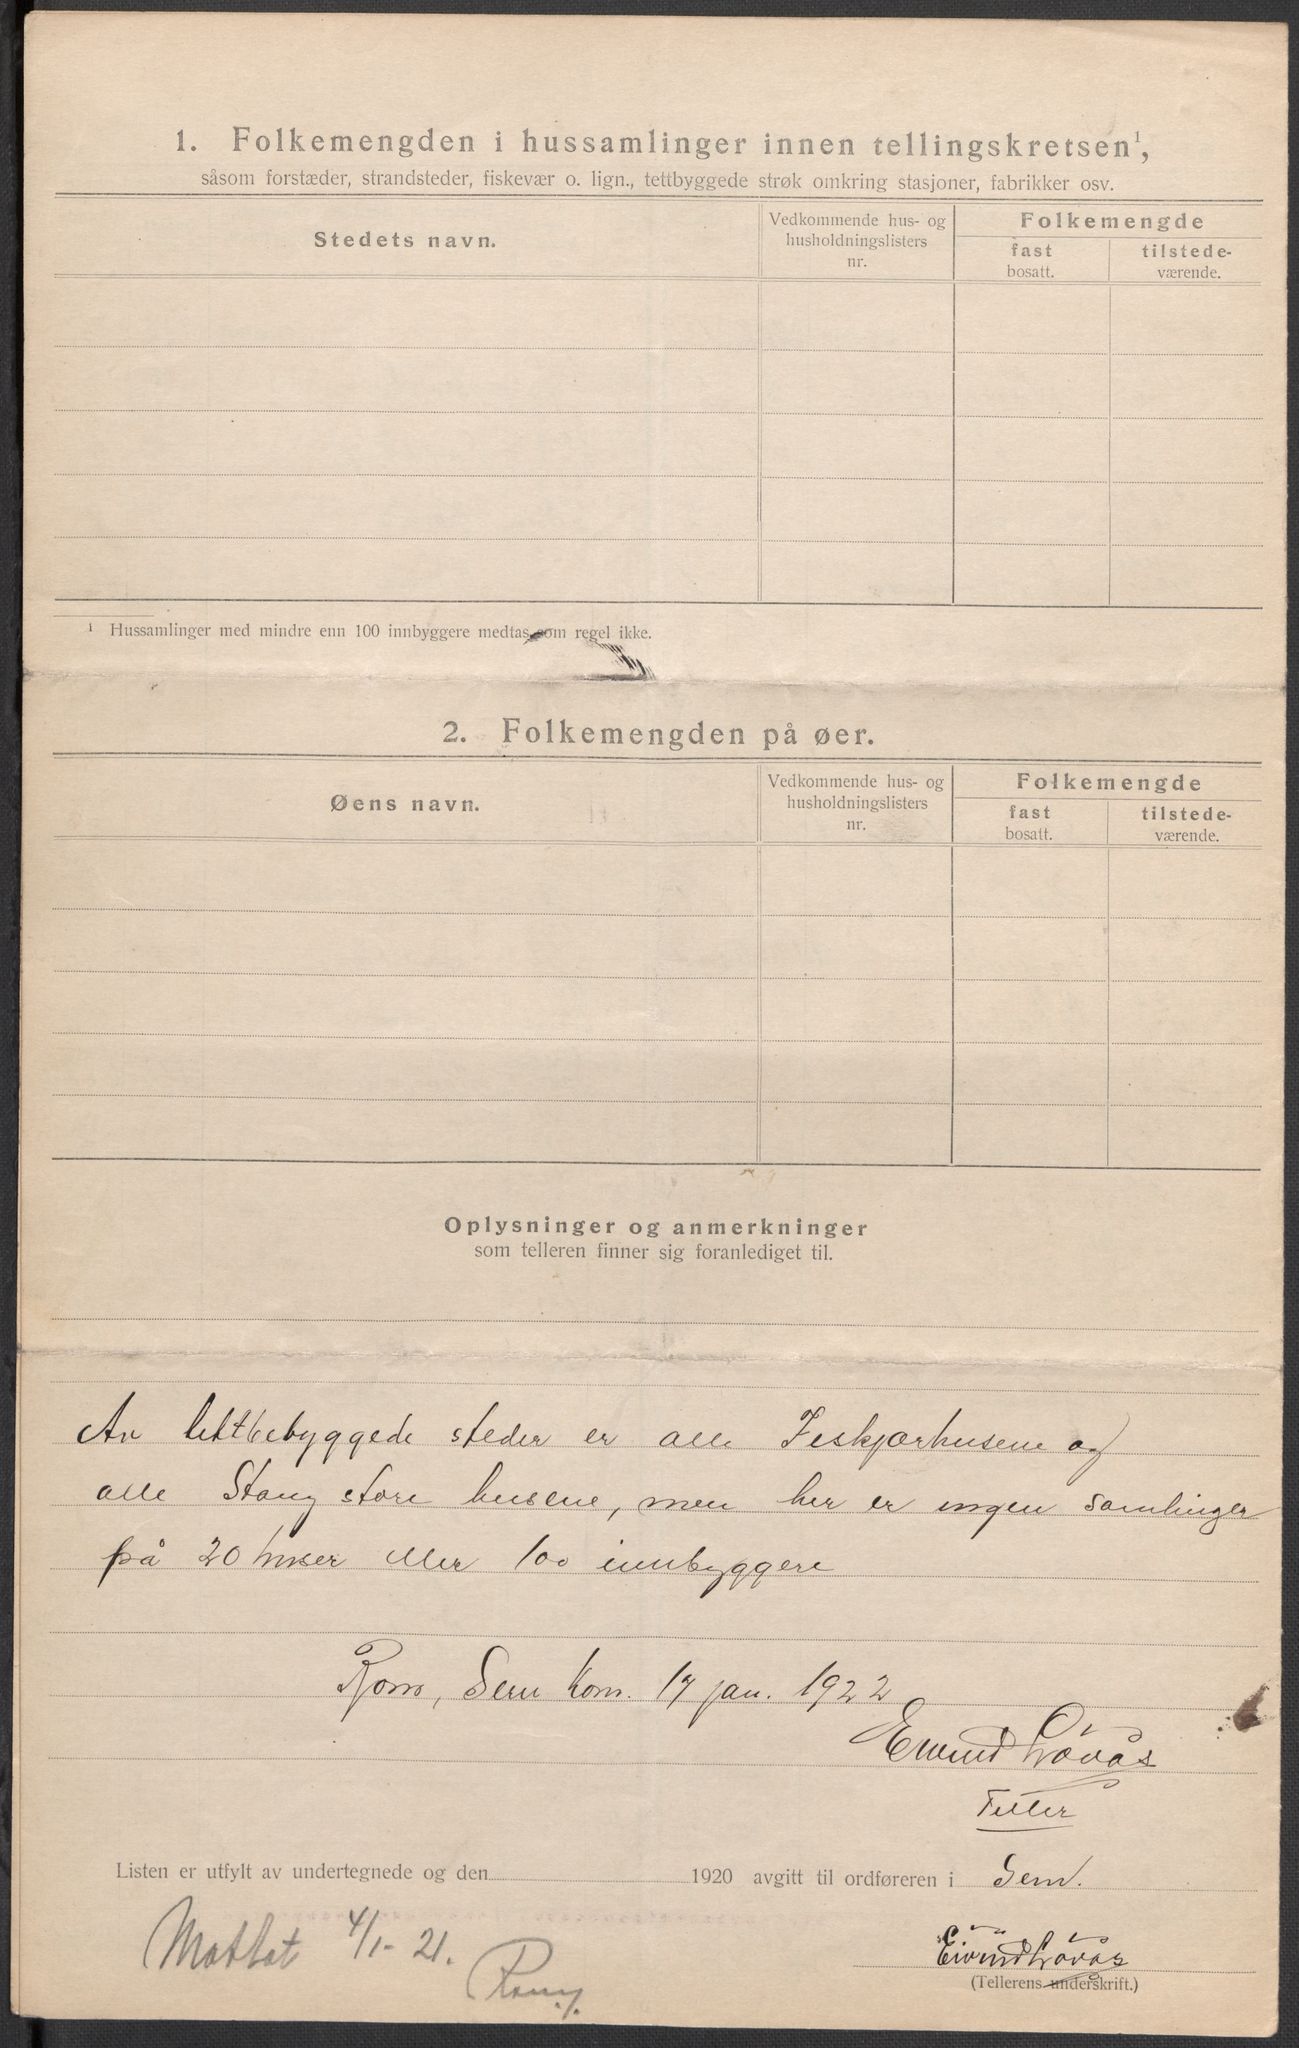 1. Folkemengden i hussamlinger innen tellingskretsen¹,
såsom forstæder, strandsteder, fiskevær o. lign., tettbyggede strøk omkring stasjoner, fabrikker osv.
Stedets navn.
Vedkommende hus- og
husholdningslisters
nr.
Folkemengde
fast
bosatt.
tilstede-
værende.
¹ Hussamlinger med mindre enn 100 innbyggere medtas som regel ikke.
2. Folkemengden på øer.
Øens navn.
Vedkommende hus- og
husholdningslisters
nr.
Folkemengde
fast
bosatt.
tilstede-
værende.
Oplysninger og anmerkninger
som telleren finner sig foranlediget til.
Av tettbebyggede steder er alle Feskjærhusene og
alle Stang store husene, men her er ingen samlinger
på 20 huser eller 100 innbyggere
Rom, Sem kom. 17 jan. 1922
Eivind Løvås
Teller
Listen er utfylt av undertegnede og den 1920 avgitt til ordføreren i Sem.
Mottat 4/1-21.
Eivind Løvås
(Tellerens underskrift.)